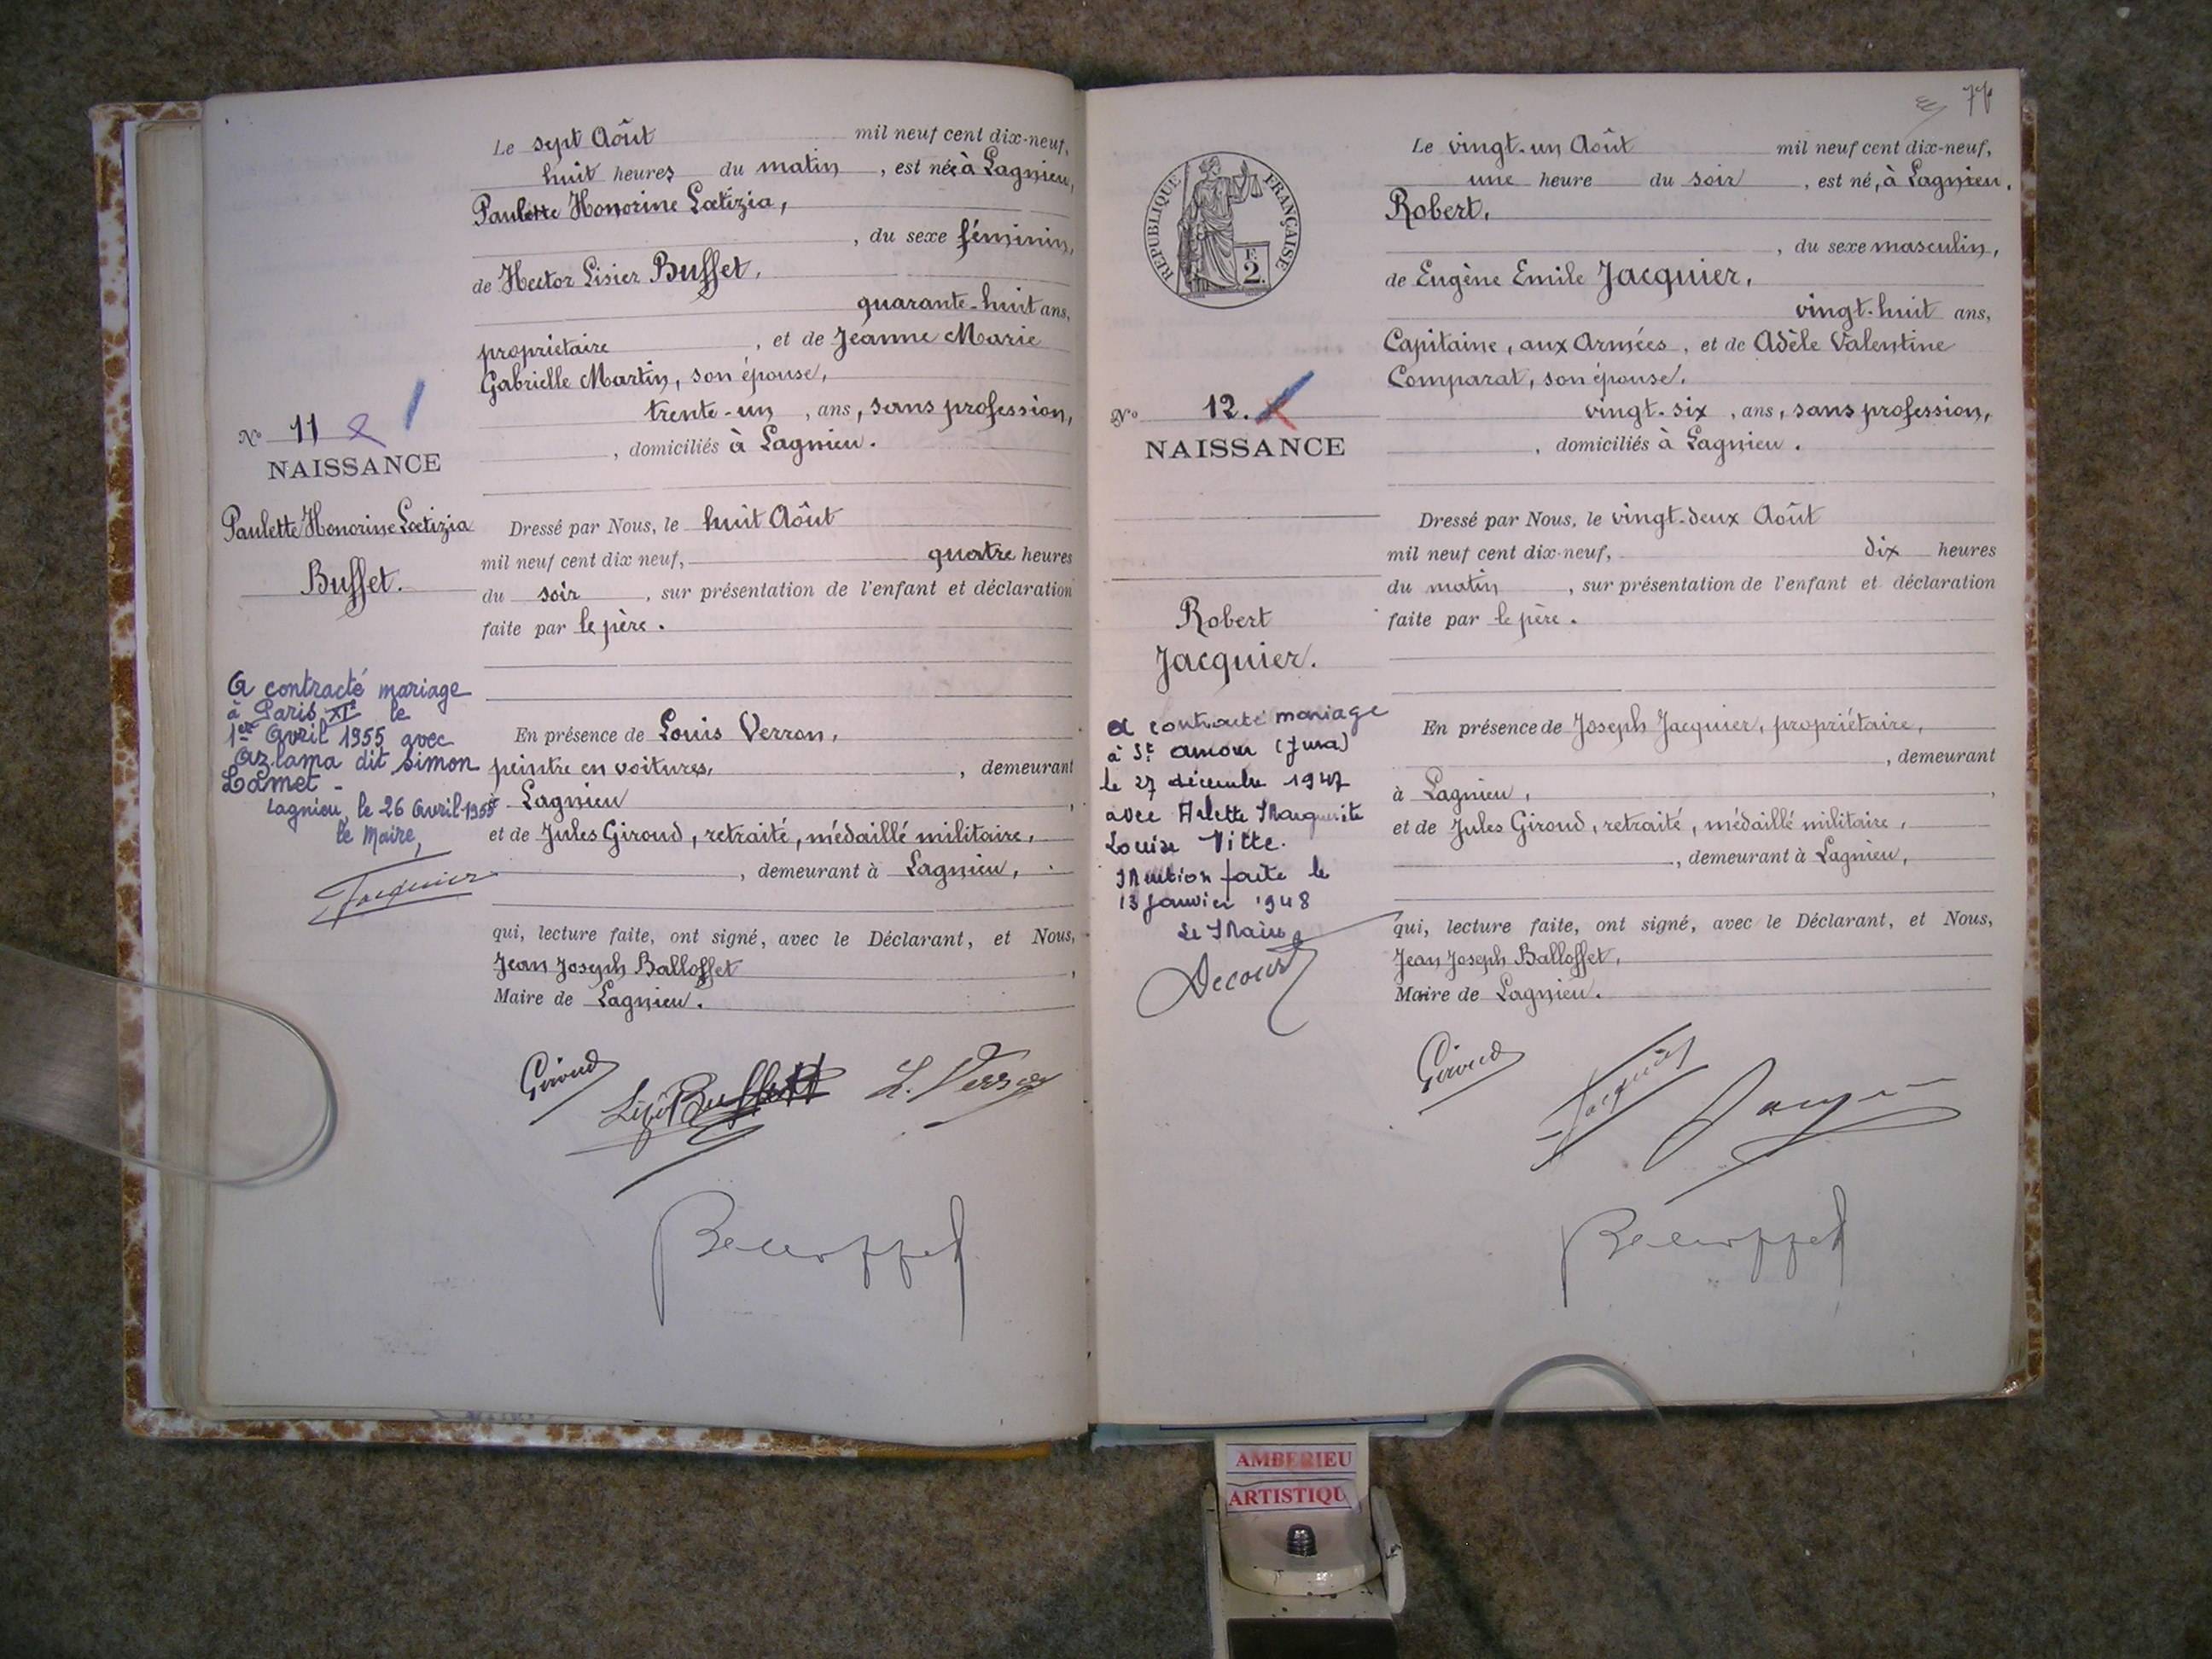 Le sept Août mil neuf cent dix-neuf,
huit heures du matin, est née à Lagnieu,
Paulette Honorine Lœtizia,
, du sexe féminin,
de Hector Lisier Buffet,
quarante-huit ans,
propriétaire, et de Jeanne Marie
Gabrielle Martin, son épouse,
trente-un, ans, sans profession,
, domiciliés à Lagnieu.
Dressé par Nous, le huit Août
mil neuf cent dix neuf, quatre heures
du soir, sur présentation de l'enfant et déclaration
faite par le père.
En présence de Louis Verron,
peintre en voitures, , demeurant
à Lagnieu,
et de Jules Giroud, retraité, médaillé militaire,
, demeurant à Lagnieu,
qui, lecture faite, ont signé, avec le Déclarant, et Nous,
Jean Joseph Balloffet,
Maire de Lagnieu.
Giroud
Buffet
L. Verron
Balloffet
N° 11
NAISSANCE
Paulette Honorine Lœtizia
Buffet.
A contracté mariage
à Paris XIe le
1er Avril 1955 avec
Azlama dit Simon
Lamet -
Lagnieu, le 26 Avril 1955
le Maire,
Jacquier
77
REPUBLIQUE FRANÇAISE
2F.
Le vingt-un Août mil neuf cent dix-neuf,
une heure du soir, est né, à Lagnieu,
Robert,
, du sexe masculin,
de Eugène Emile Jacquier,
vingt-huit ans,
Capitaine, aux Armées, et de Adèle Valentine
Comparat, son épouse,
vingt-six, ans, sans profession,
, domiciliés à Lagnieu.
Dressé par Nous, le vingt-deux Août
mil neuf cent dix-neuf, dix heures
du matin, sur présentation de l'enfant et déclaration
faite par le père.
En présence de Joseph Jacquier, propriétaire,
, demeurant
à Lagnieu,
et de Jules Giroud, retraité, médaillé militaire,
, demeurant à Lagnieu,
qui, lecture faite, ont signé, avec le Déclarant, et Nous,
Jean Joseph Balloffet,
Maire de Lagnieu.
Giroud
Jacquier
Jacquier
Balloffet
N° 12.
NAISSANCE
Robert
Jacquier.
a contracté mariage
à St amour (Jura)
le 27 décembre 1947
avec Arlette Marguerite
Louise Vitte.
Mention faite le
13 janvier 1948
Le Maire
Decourt
AMBERIEU
ARTISTIQU